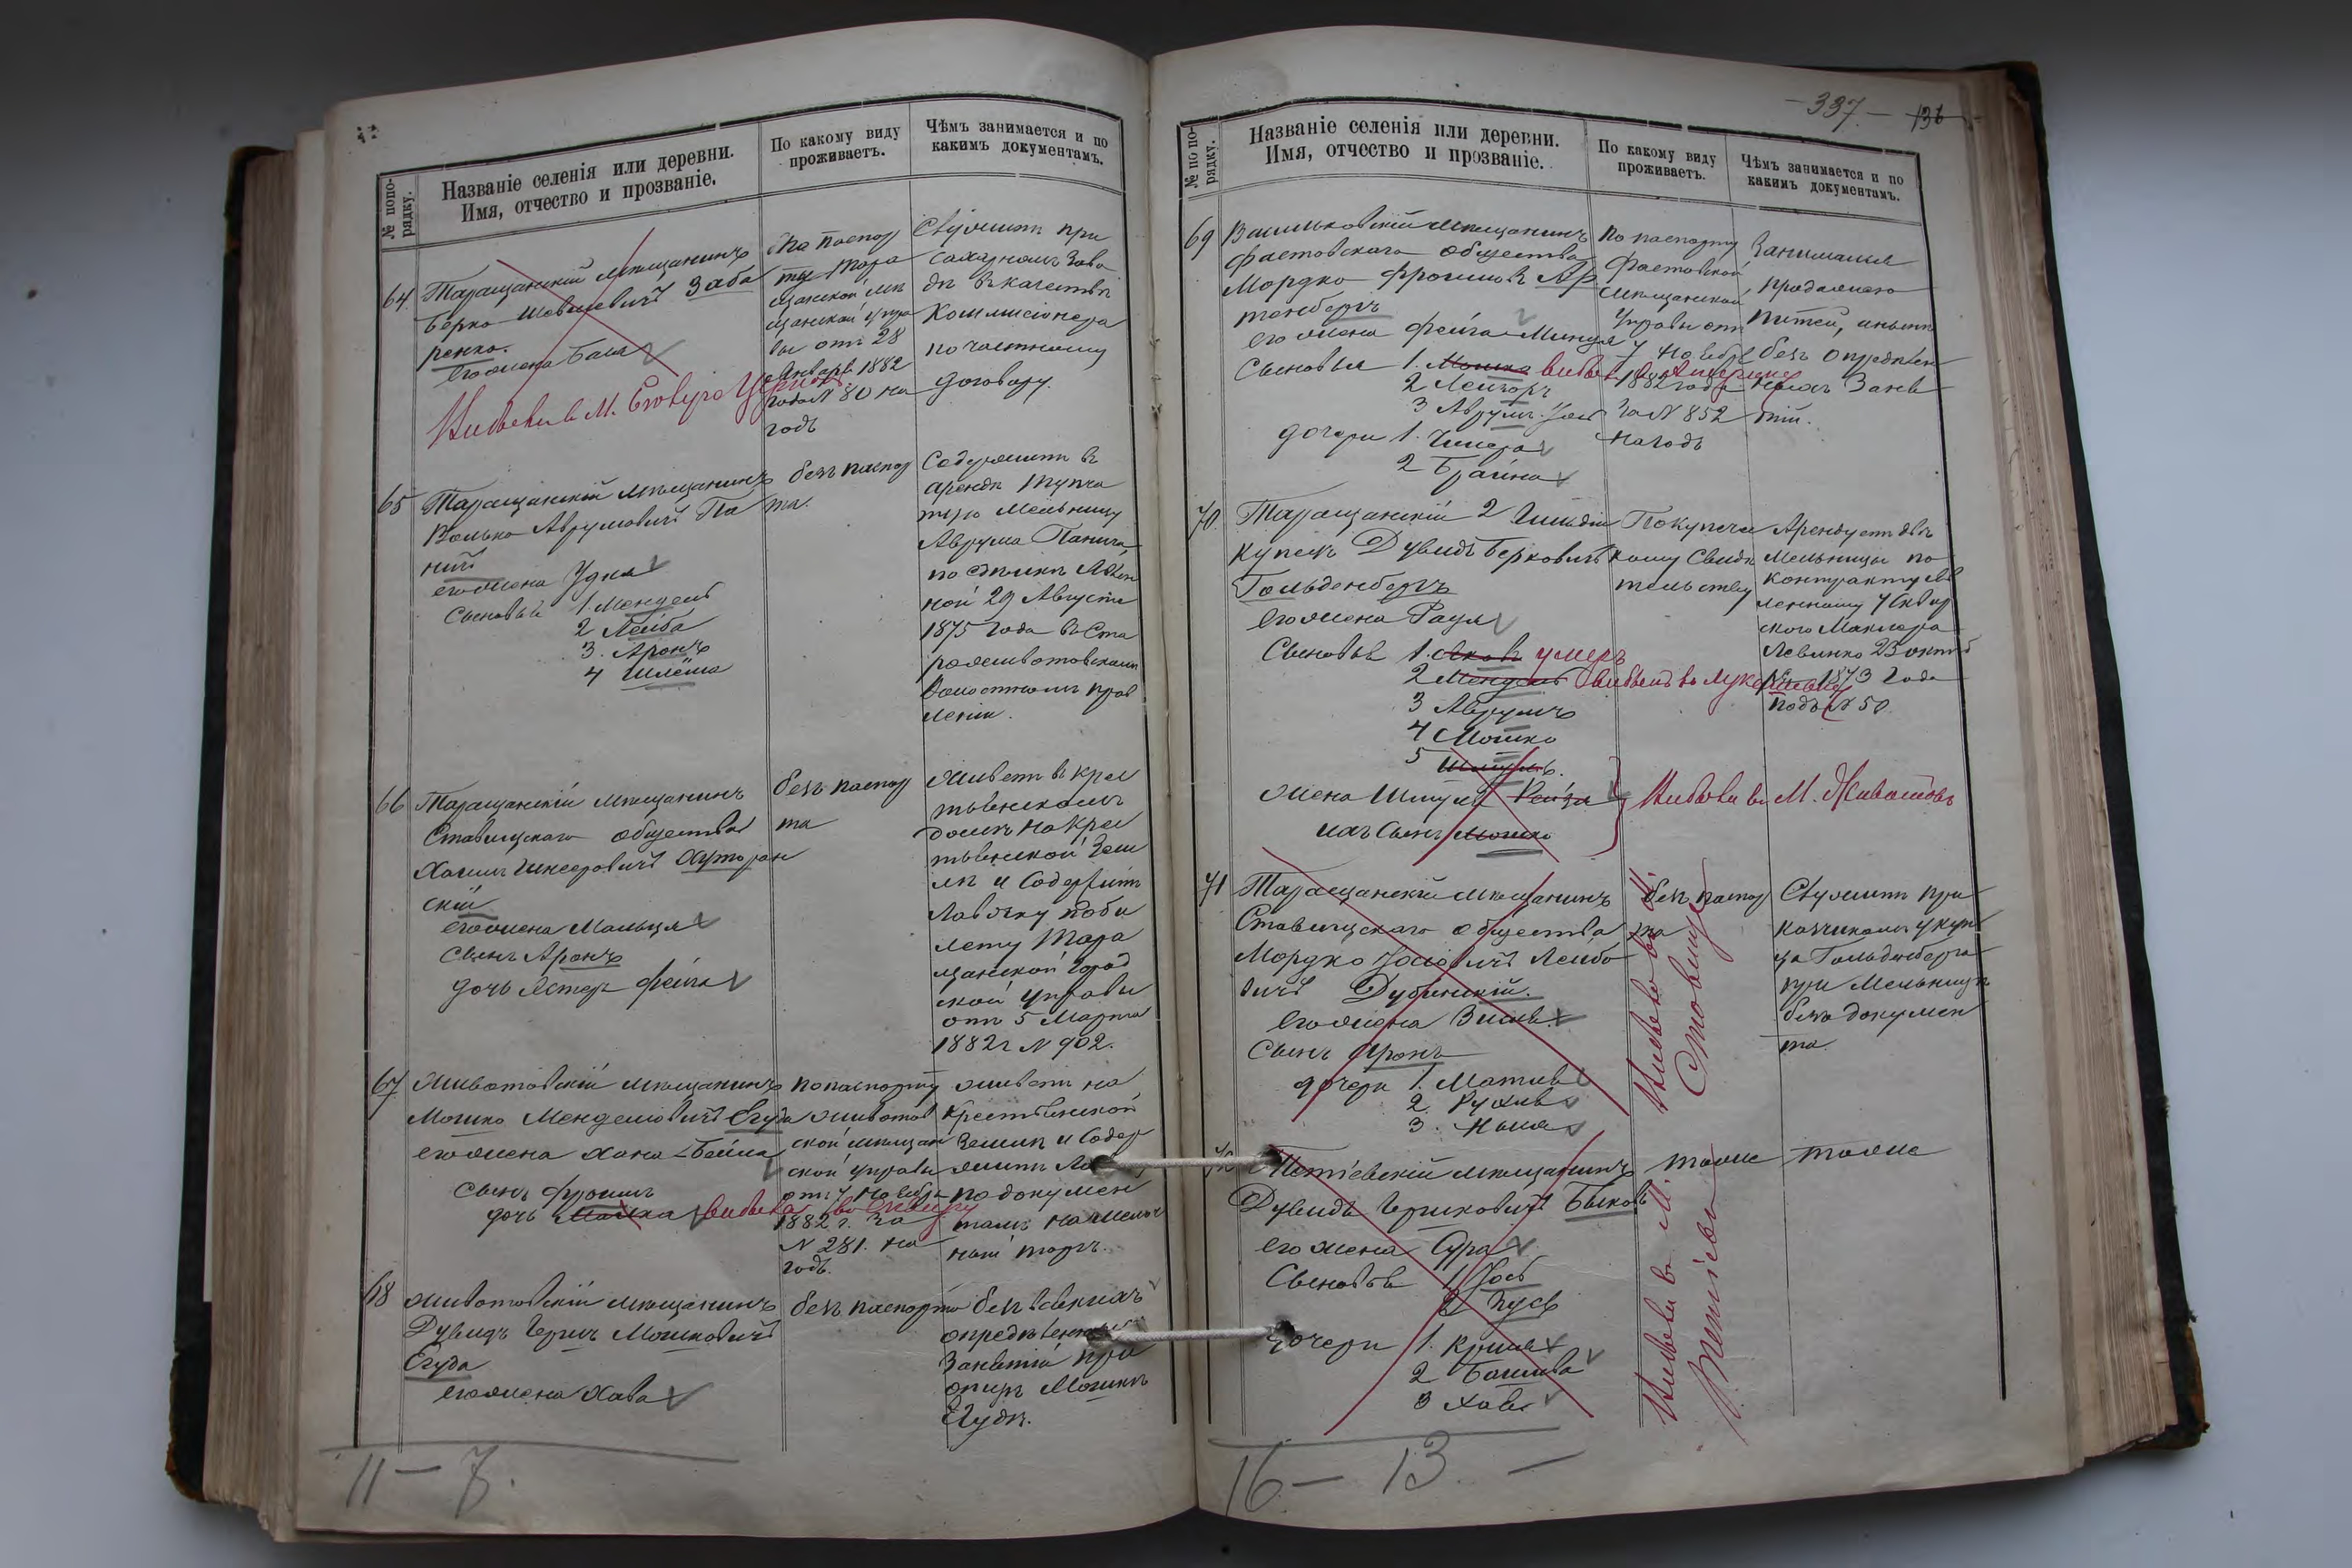 № попо-
рядку.
Названіе селенія или деревни.
Имя, отчество и прозваніе.
По какому виду
проживаетъ.
Чѣмъ занимается и по
какимъ документамъ.
64 Таращанскій мѣщанинъ
Берко Забо
ренко.
его жена Бася
Выбыли в М.
По паспор
ту Тара
щанской мѣ
щанской упра
вы отъ 28
Января 1882
года N 80 на
годъ
Служитъ при
сахарномъ заво
дѣ въ качествѣ
Коммисіонера
по частному
договору.
65 Таращанскій мѣщанинъ
Волько Аврумовичъ Па
ничъ
его жена Удля
Сыновья 1. Мендель
2 Лейба
3. Аронъ
4 Шлёма
безъ паспор
та.
Содержитъ въ
арендѣ
мельницу
Аврума Панича
по сдѣлкѣ
ной 29 Августа
1875 года въ Ста
роживотовскомъ
Волостномъ прав
леніи.
66 Таращанскій мѣщанинъ
Ставищскаго общества
Хаимъ Хуторян
скій
его жена Мальця
сынъ Аронъ
дочь Эстеръ Фейга
безъ паспор
та
живетъ въ крес
тьянскомъ
домѣ на крес
тьянской зем
лѣ и содержитъ
лавочку по би
лету Тара
щанской город
ской управы
отъ 5 Марта
1882 г N 902.
67 Животовскій мѣщанинъ
Мошко Менделовичъ Егуда
его жена Хана-Бейла
сынъ Фроимъ
дочь Малка выбыла въ Сквиру
по паспорту
Животов
ской мѣщан
ской управы
отъ 7 Ноября
1882 г. за
N 281. на
годъ.
живетъ на
крестьянской
землѣ и содер
житъ
по докумен
тамъ на мелоч
ной торгъ.
68 Животовскій мѣщанинъ
Дувидъ Гершъ Мошковичъ
Егуда
его жена Хава
безъ паспорта
безъ всякихъ
опредѣленныхъ
Занятій при
отцѣ Мошкѣ
Егудѣ.
11 — 7.
— 337. — 136
№ по по-
рядку.
Названіе селенія или деревни.
Имя, отчество и прозваніе.
По какому виду
проживаетъ.
Чѣмъ занимается и по
какимъ документамъ.
69 Васильковскій мѣщанинъ
Фастовскаго общества
Мордко Фроимовъ Ар
тенбергъ
его жена Фейга-Миндля
Сыновья 1. Мошко выбылъ в Америку
2 Лейзоръ
3 Аврумъ-Іось
дочери 1.
2 Брайна
По паспорту
Фастовской
мѣщанской
Управы отъ
7 Ноября
1882 года
за N 852
на годъ
Занимался
продажею
питей, а нынѣ
безъ опредѣлен
ныхъ Заня
тій.
70. Таращанскій 2 Гильдіи
купецъ Дувидъ Берковичъ
Гольденбергъ
его жена Рася
Сыновья 1. умеръ
2 Мендель выбылъ въ
3 Аврумъ
4 Мошко
5 Шмуль.
жена Шмуля Рейзя
ихъ сынъ Мошко
Выбыли въ М. Животовъ
По купечес
кому свидѣ
тельству
Арендуетъ двѣ
мельницы по
контракту
у Сквир
ского Маклера
Левинко 23 октяб
ря 1873 года
подъ N 50
71 Таращанскій мѣщанинъ
Ставищскаго общества
Мордко Лейбо
вичъ Дубинскій.
его жена
Сынъ Аронъ
дочери 1.
2. Рухля
3.
безъ паспор
та
Выбыло въ М.
Ставище
Служитъ при
кащикомъ у куп
ца Гольденберга
при мельницѣ
безъ докумен
та.
72 Тетіевскій мѣщанинъ
Дувидъ Гершковичъ Быковъ
его жена Сура
Сыновья 1 Іось
2
дочери 1.
2
3 Хава
тоже
Выбыли въ М.
Тетіевъ
тоже
16 — 13. —